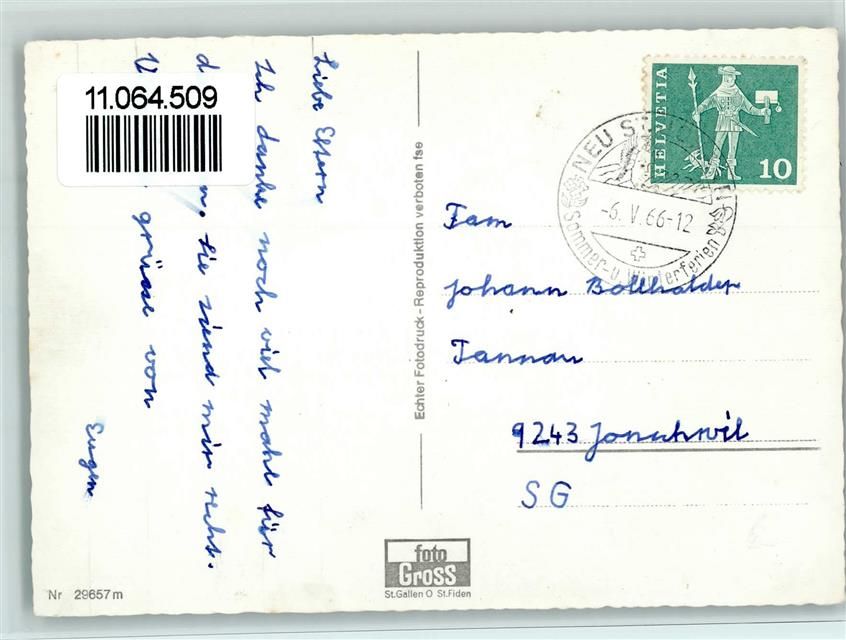 Liebe Eltern
Ich danke noch viel mahl für
d n. Sie siend mir recht.
V grüsse von
Eugen
11.064.509
Echter Fotodruck - Reproduktion verboten fse
HELVETIA
10
NEU ST
-6.V.66-12
Sommer-u. Winterferien
Fam
Johann Bollhalder
Tannau
9243 Jonschwil
SG
foto
Gross
St.Gallen O St.Fiden
Nr 29657m